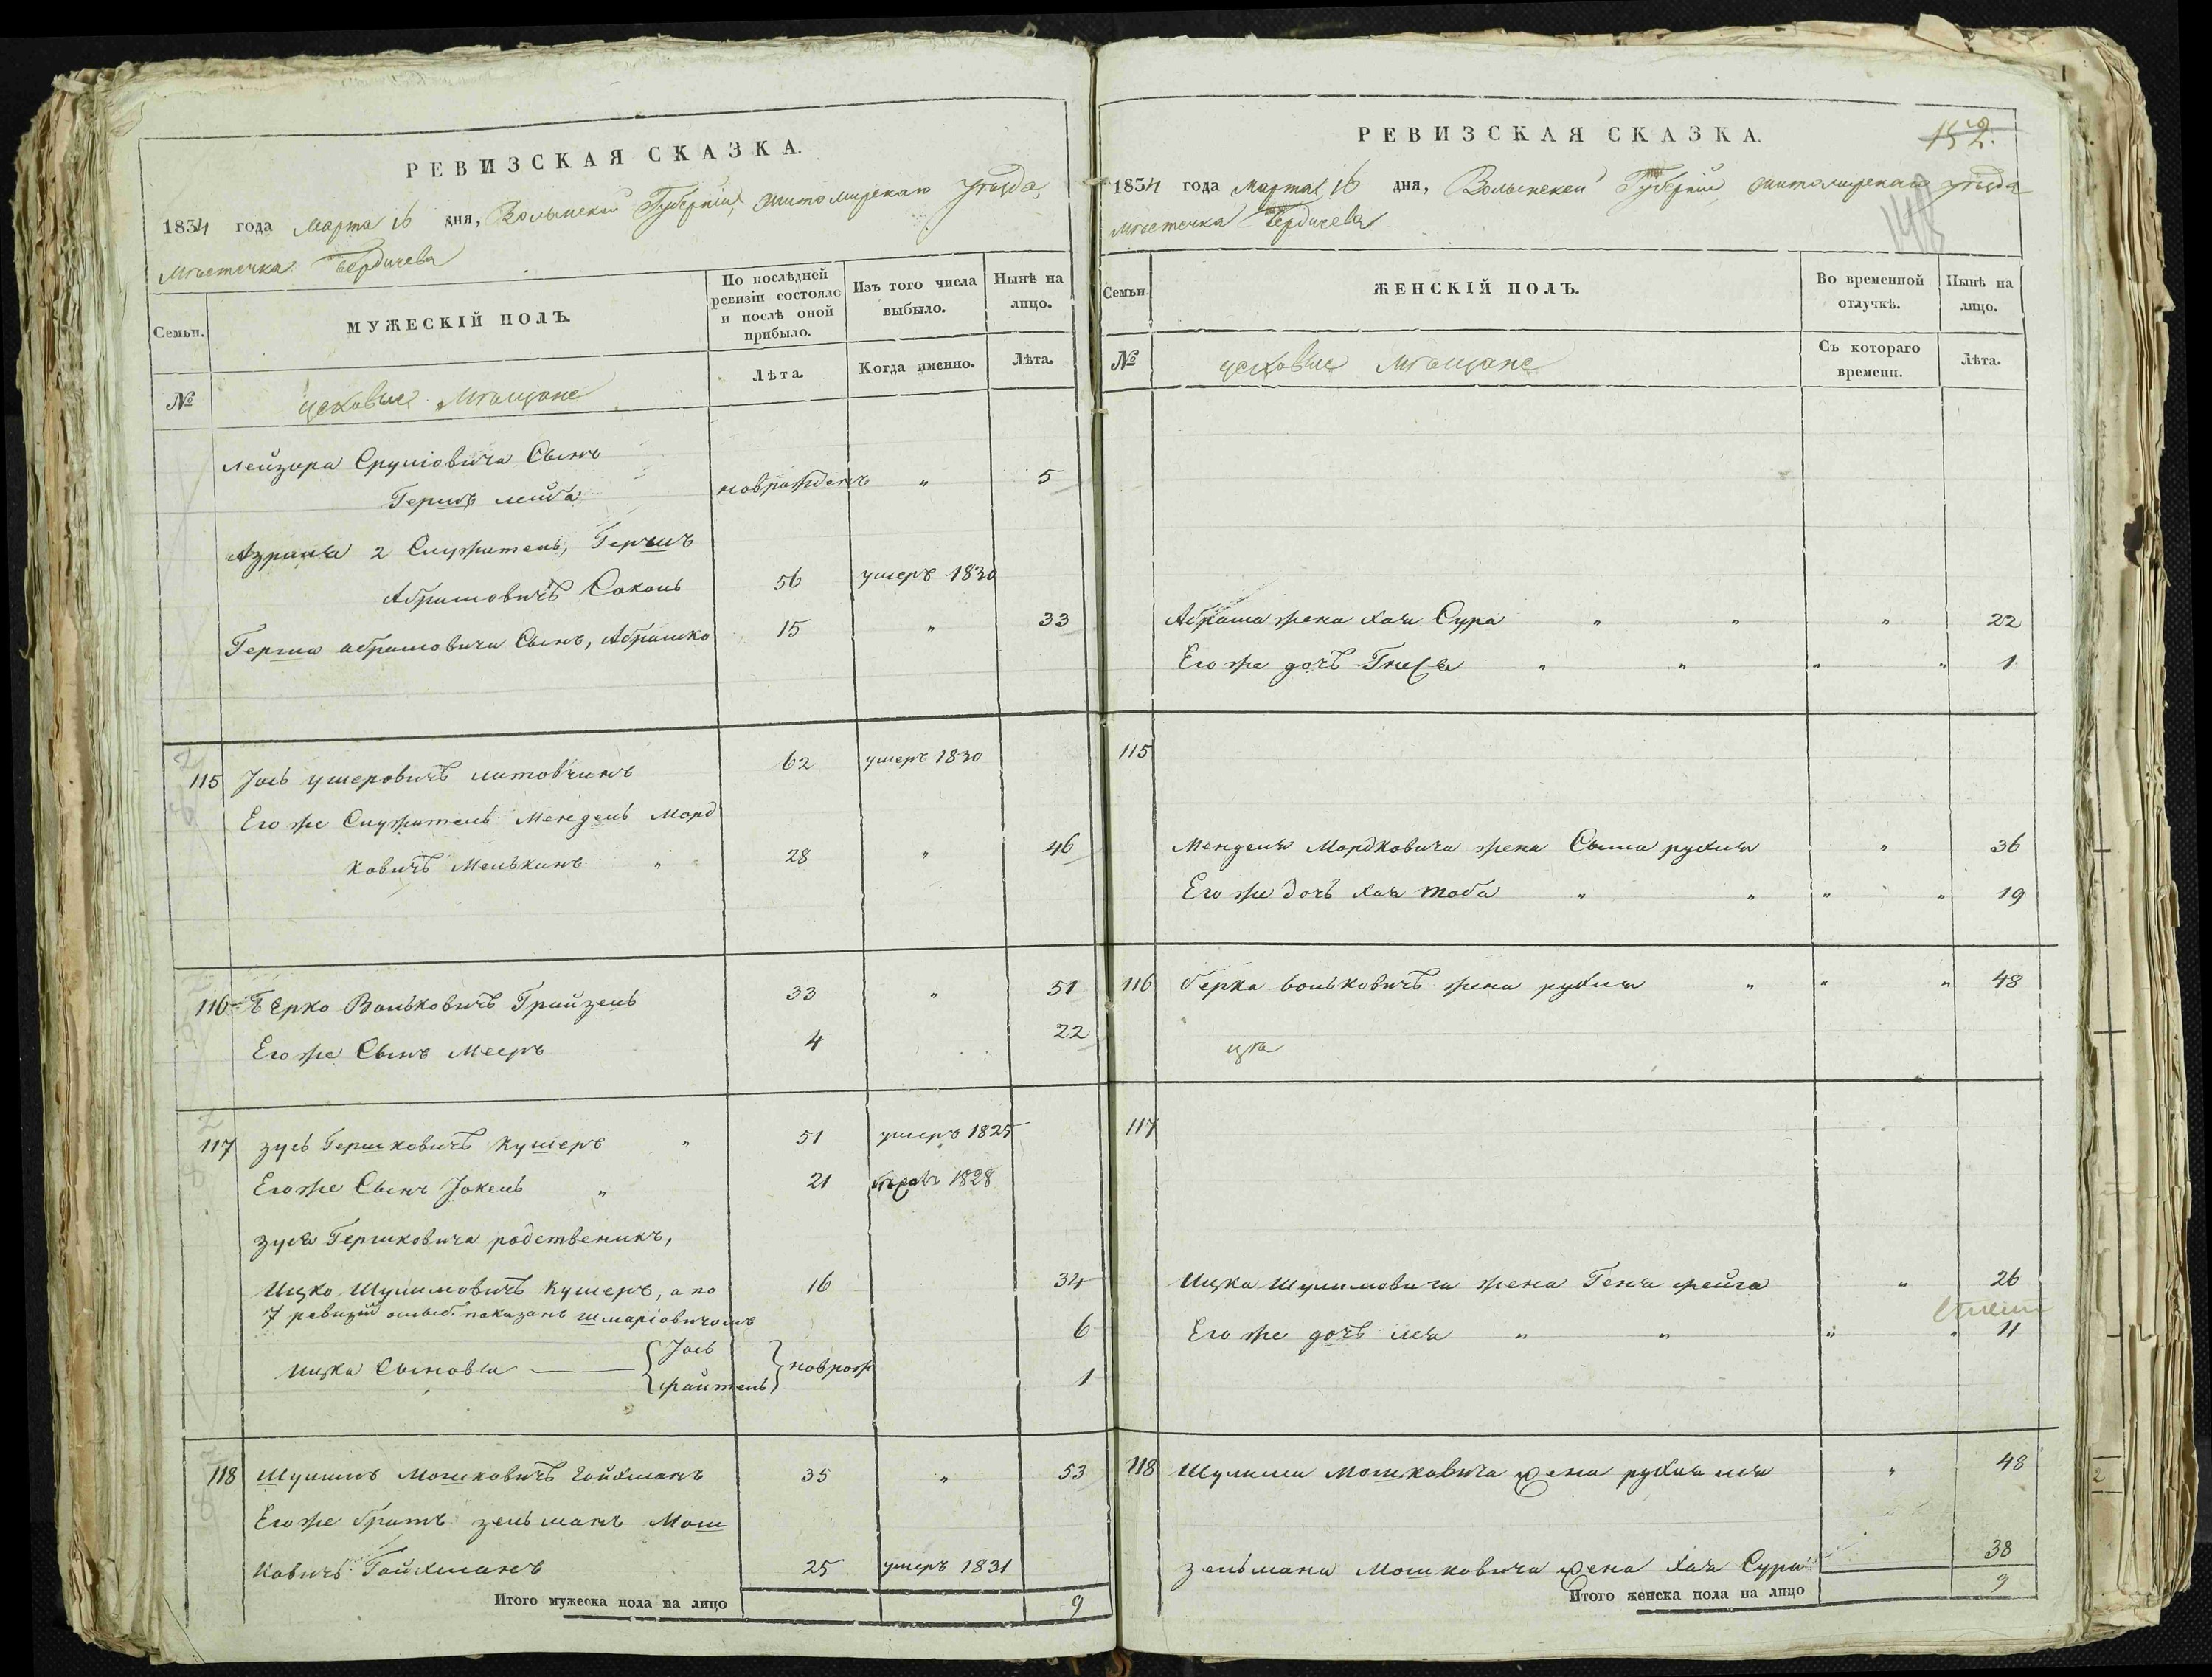 РЕВИЗСКАЯ СКАЗКА.
1834 года Марта 16 дня, Волынской Губернии, Житомирскаго Уѣзда,
Мѣстечка Бердичева
Семьи.
МУЖЕСКІЙ ПОЛЪ.
По послѣдней ревизіи состояло и послѣ оной прибыло.
Изъ того числа выбыло.
Нынѣ на лицо.
№
Мѣщане
Лѣта.
Когда именно.
Лѣта.
Лейзора Сруліовича Сынъ
Гершъ лейба новрожденъ " 5
2 Служитель, Гершъ
Абрамовичъ Соколь 56 умеръ 1830
Герша абрамовича Сынъ, Абрамко 15 " 33
115 Iось ушеровичъ литовчинъ 62 умеръ 1830
Его же Служитель Мендель Морд
ковичъ Мелькинъ " 28 " 46
116 Берко Вольковичъ Грайзель 33 " 51
Его же Сынъ Мееръ 4 22
117 зусь Гершковичъ Кушеръ " 51 умеръ 1825
Его же Сынъ Iокель " 21 1828
зуся Гершковича родственикъ,
Ицко Шулимовичъ Кушеръ, а по 16 34
7 ревизіи ошыб. показанъ шмаріовичомъ
6
ицка Сыновья — — { Iось
файтель } новрож
1
118 Шулимъ Мошковичъ Гойхманъ 35 " 53
Его же братъ зельманъ Мош
ковичъ Гойхманъ 25 умеръ 1831
Итого мужеска пола на лицо 9
РЕВИЗСКАЯ СКАЗКА.
152.
1834 года Марта 16 дня, Волынской Губерніи Житомирскаго уѣзда
148
Мѣстечка Бердичева
Семьи
ЖЕНСКІЙ ПОЛЪ.
Во временной отлучкѣ.
Нынѣ на лицо.
№
Мѣщане
Съ котораго времени.
Лѣта.
Абрама жена хая Сура " " " 22
Его же дочъ Гнеся " " " " 1
115
Менделя Мордковича жена Сыма рухля " 36
Его же дочъ хая тоба " " " " 19
116 берка вольковичъ жена рухля " " " 48
117
Ицка Шулимовича жена Геня фейга " 26
Его же дочъ лея " " " " 11
118 Шулима Мошковича жена рухля лея " 48
зельмана Мошковича жена хая Сура 38
Итого женска пола на лицо 9